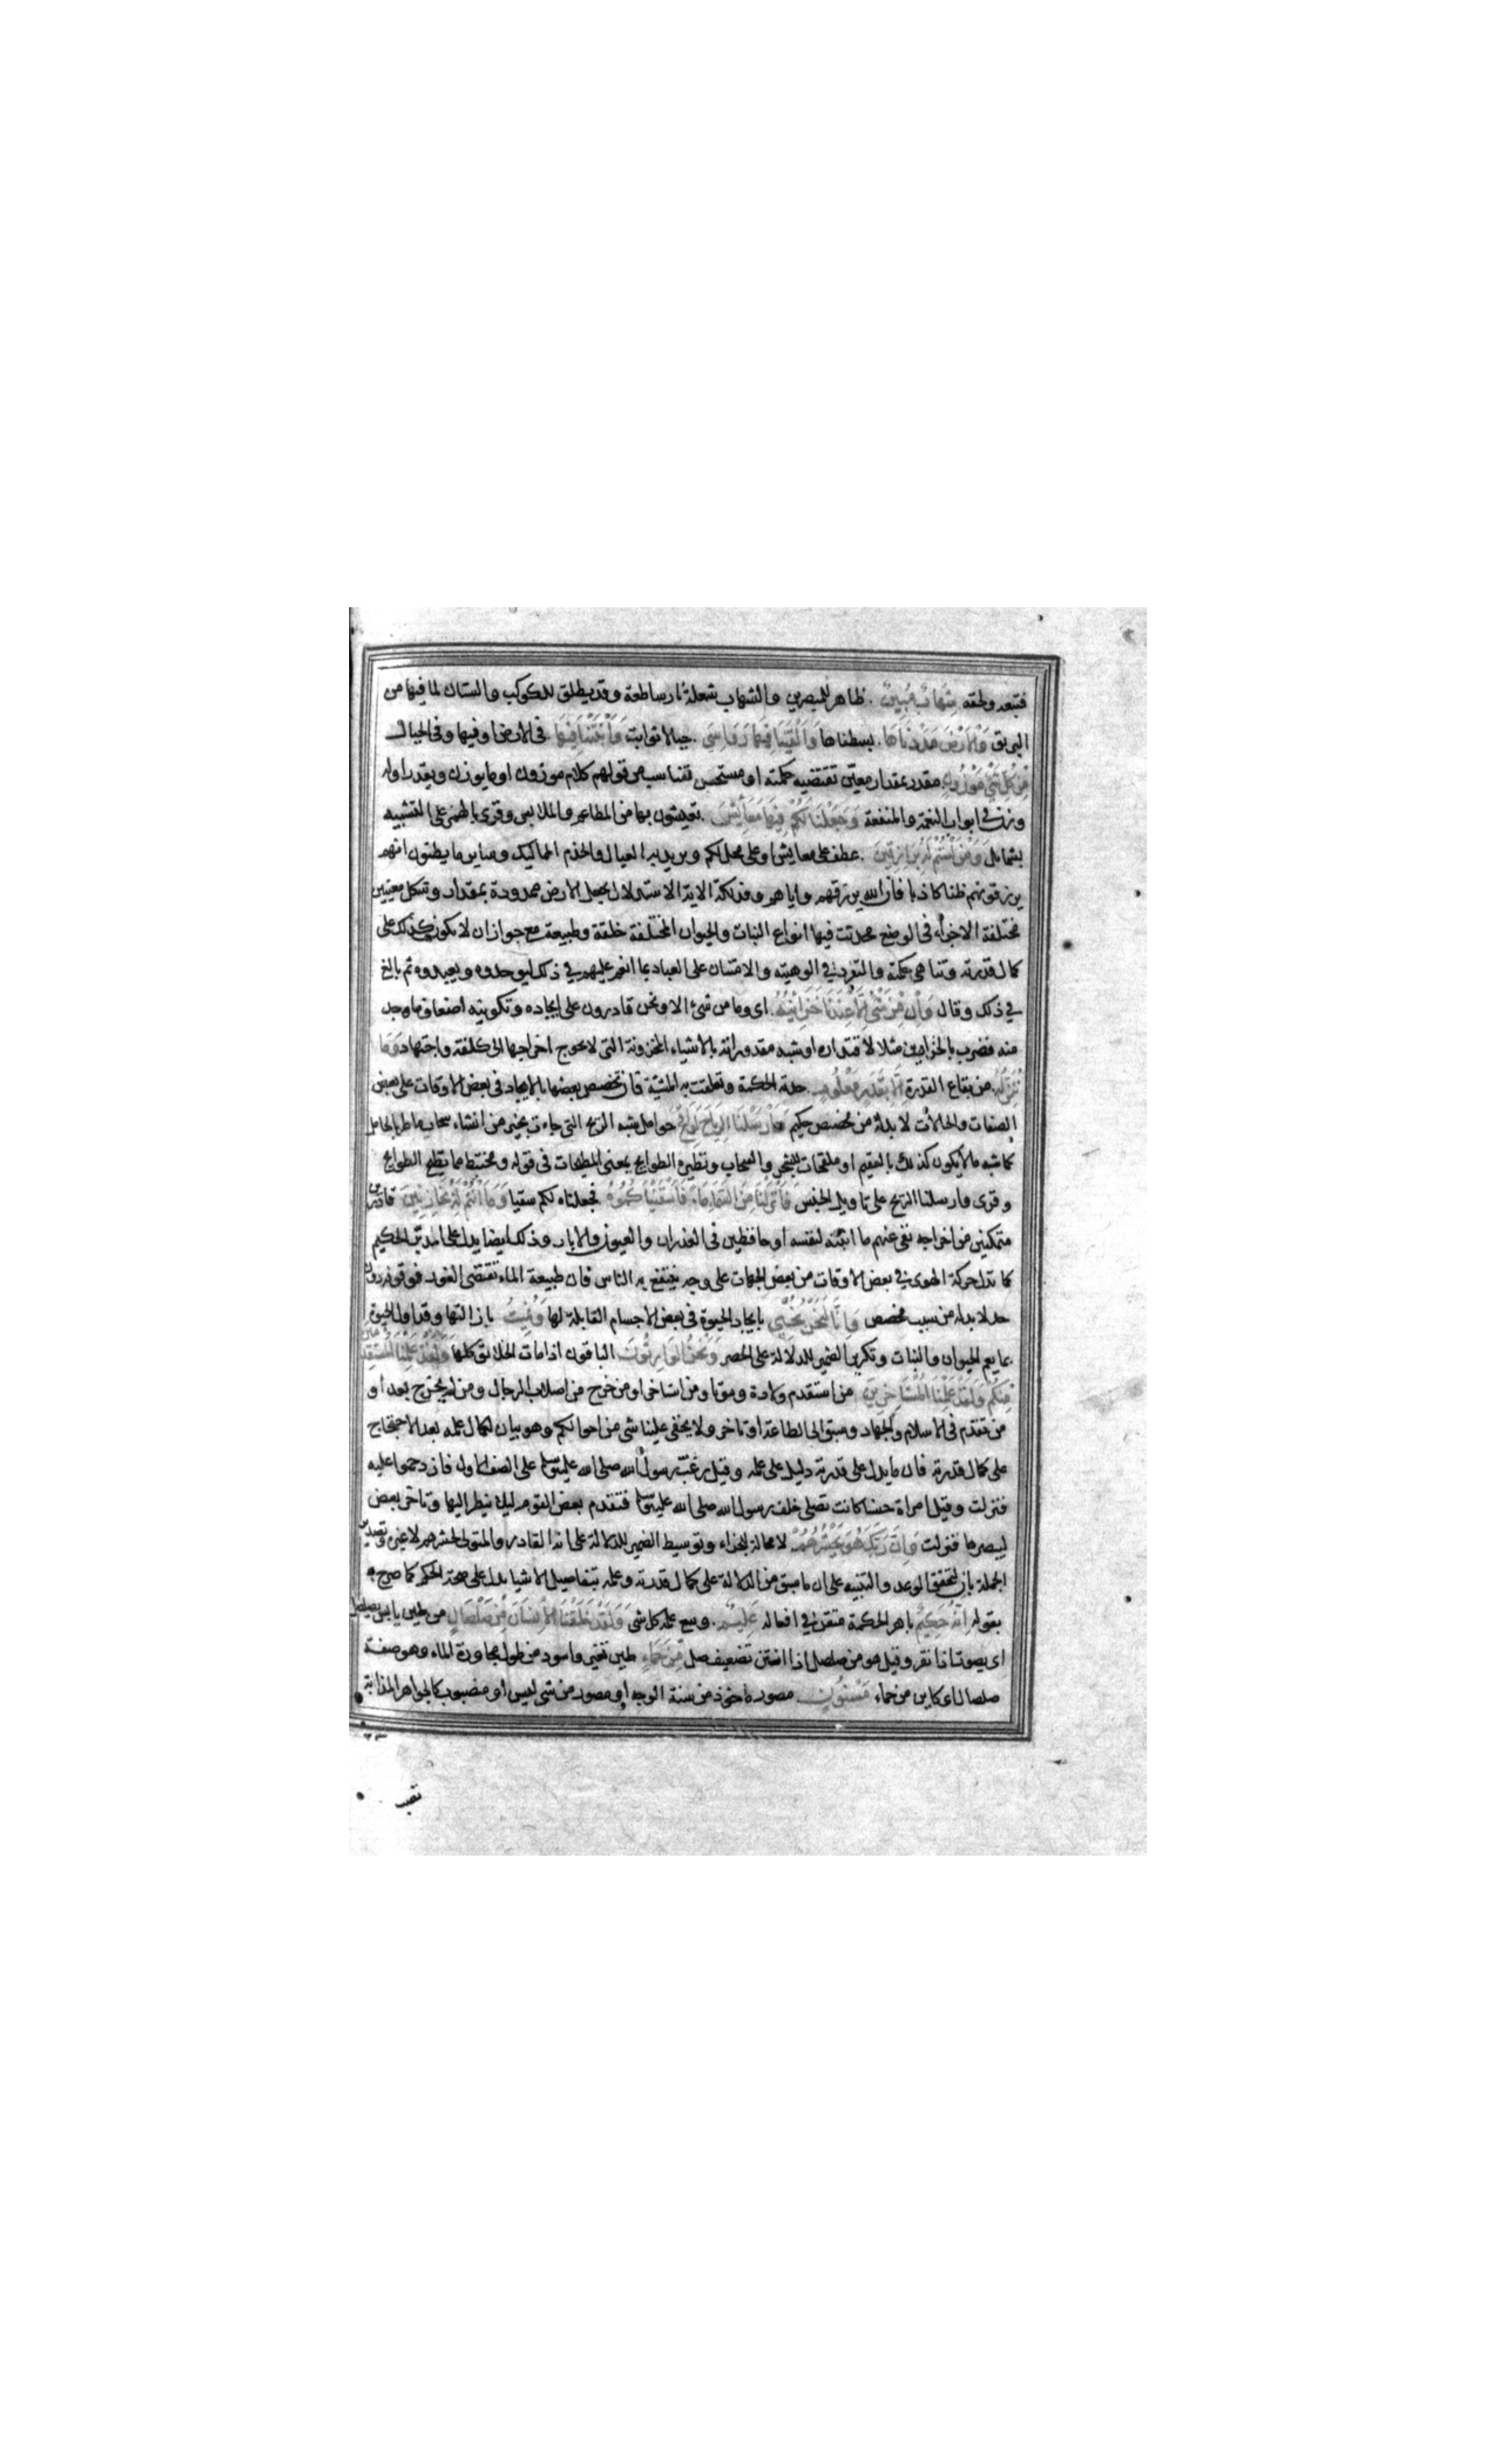 فتبعه ولحقه شِهَابٌ مُبِينٌ ظاهر للمبصرين والشهاب شعلة نار ساطعة وقد يطلق للكوكب والسنان لما فيها من
البريق وَالْأَرْضَ مَدَدْنَاهَا بسطناها وَأَلْقَيْنَا فِيهَا رَوَاسِيَ جبالا ثوابت وَأَنْبَتْنَا فِيهَا فى الارض او فيها وفى الجبال
مِنْ كُلِّ شَيْءٍ مَوْزُونٍ مقدر بمقدار معين تقتضيه حكمته او مستحسن متناسب من قولهم كلام موزون او ما يوزن ويقدر اوله
وزن فى ابواب النعمة والمنفعة وَجَعَلْنَا لَكُمْ فِيهَا مَعَايِشَ تعيشون بها من المطاعم والملابس وقرى بالهمز على التشبيه
بشمايل وَمَنْ لَسْتُمْ لَهُ بِرَازِقِينَ عطف على معايش او على محل لكم ويريد به العيال والخدم والمماليك وساير ما يظنون انهم
يرزقونهم ظنا كاذبا فان الله يرزقهم واياهم وفذلكة الاية الاستدلال بجعل الارض ممدودة بمقدار وشكل معينين
مختلفة الاجزاء فى الوضع محدثة فيها انواع النبات والحيوان المختلفة خلقة وطبيعة مع جواز ان لا يكون كذلك على
كمال قدرته وتناهى حكمته والتفرد فى الوهيته والامتنان على العباد بما انعم عليهم فى ذلك ليوحدوه ويعبدوه ثم بالغ
فى ذلك وقال وَإِنْ مِنْ شَيْءٍ إِلَّا عِنْدَنَا خَزَائِنُهُ اى وما من شئ الا ونحن قادرون على ايجاده وتكوينه اضعاف ما وجد
منه فضرب بالخزاين مثلا لاقتداره او شبه مقدوراته بالاشياء المخزونة التى لا يحوج اخراجها الى كلفة واجتهاد وَمَا
نُنَزِّلُهُ من بقاع القدرة إِلَّا بِقَدَرٍ مَعْلُومٍ حده الحكمة وتعلقت به المشية فان تخصيص بعضها بالايجاد فى بعض الاوقات على بعض
الصفات والحالات لا بد له من مخصص حكيم وَأَرْسَلْنَا الرِّيَاحَ لَوَاقِحَ حوامل شبه الريح التى جاءت بخير من انشاء سحاب ماطر بالحامل
كما شبه ما لا يكون كذلك بالعقيم او ملقحات للشجر والسحاب ونظيره الطوايح بمعنى المطيحات فى قوله ومختبط مما تطيح الطوايح
وقرى وارسلنا الريح على تاويل الجنس فَأَنْزَلْنَا مِنَ السَّمَاءِ مَاءً فَأَسْقَيْنَاكُمُوهُ فجعلناه لكم سقيا وَمَا أَنْتُمْ لَهُ بِخَازِنِينَ قادرين
متمكنين من اخراجه نفى عنهم ما اثبته لنفسه او حافظين فى الغدران والعيون والابار وذلك ايضا يدل على المدبر الحكيم
كما تدل حركة الهوى فى بعض الاوقات من بعض الجهات على وجه ينتفع به الناس فان طبيعة الماء تقتضى الغور فوقوفه دون
حد لا بد له من سبب مخصص وَإِنَّا لَنَحْنُ نُحْيِي بايجاد الحيوة فى بعض الاجسام القابلة لها وَنُمِيتُ بازالتها وقد اول الحيوة
بما يعم الحيوان والنبات وتكرير الضمير للدلالة على الحصر وَنَحْنُ الْوَارِثُونَ الباقون اذا مات الخلائق كلها وَلَقَدْ عَلِمْنَا الْمُسْتَقْدِمِينَ
مِنْكُمْ وَلَقَدْ عَلِمْنَا الْمُسْتَأْخِرِينَ من استقدم ولادة وموتا ومن استاخر او من خرج من اصلاب الرجال ومن لم يخرج بعد او
من تقدم فى الاسلام والجهاد وسبق الى الطاعة او تاخر ولا يخفى علينا شئ من احوالكم وهو بيان لكمال علمه بعد الاحتجاج
على كمال قدرته فان ما يدل على قدرته دليل على علمه وقيل رغب رسول الله صلى الله عليه وسلم على الصف الاول فازدحموا عليه
فنزلت وقيل امراة حسنا كانت تصلى خلف رسول الله صلى الله عليه وسلم فتقدم بعض القوم ليلا ينظر اليها وتاخر بعض
ليبصرها فنزلت وَإِنَّ رَبَّكَ هُوَ يَحْشُرُهُمْ لا محالة للجزاء وتوسيط الضمير للدلالة على انه القادر والمتولى لحشرهم لا غيره وتصدير
الجملة بان لتحقق الوعد والتنبيه على ان ما سبق من الدلالة على كمال قدرته وعلمه بتفاصيل الاشيا يدل على صحة الحكم كما صرح به
بقوله إِنَّهُ حَكِيمٌ باهر الحكمة متقن فى افعاله عَلِيمٌ وسع علمه كل شى وَلَقَدْ خَلَقْنَا الْإِنْسَانَ مِنْ صَلْصَالٍ من طين يابس يصلصل
اى يصوت اذا نقر وقيل هو من صلصل اذا انتن تضعيف صل مِنْ حَمَإٍ طين تغير واسود من طول مجاورة الماء وهو صفة
صلصال اى كاين من حماء مَسْنُونٍ مصور ماخوذ من سنة الوجه او مصور من شى ليس او مصبوب كالجواهر المذابة
تصب